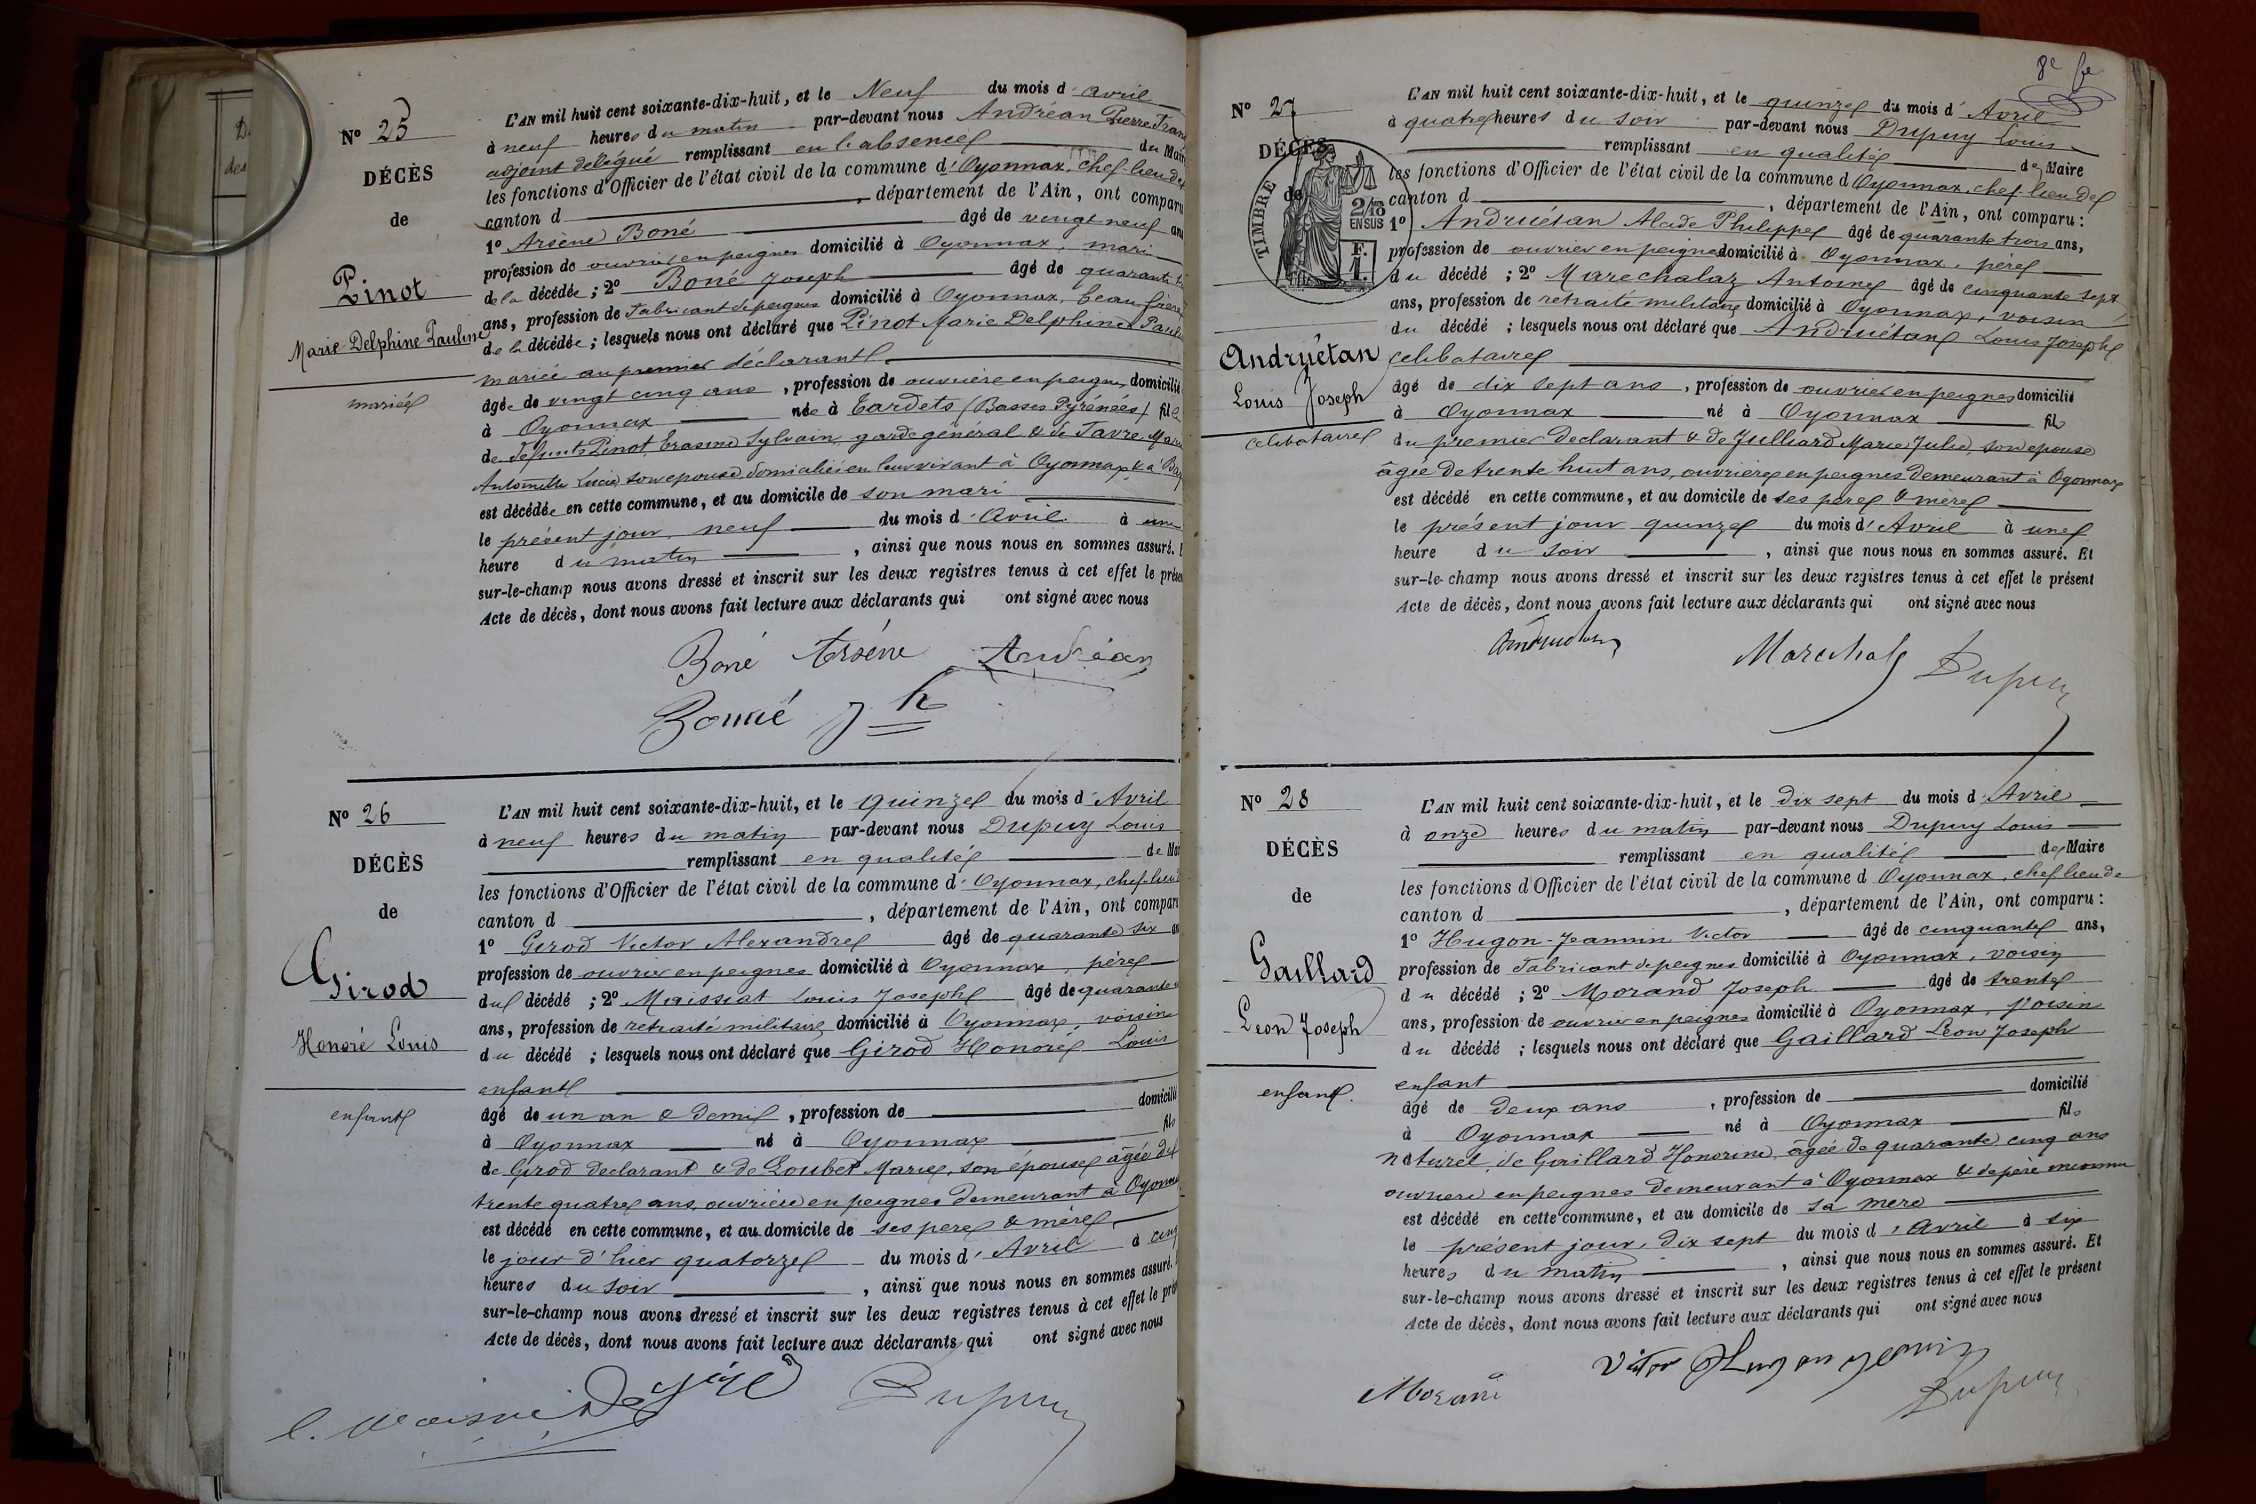 N° 25
DÉCÈS
de
Pinot
Marie Delphine Pauline
mariée
L'AN mil huit cent soixante-dix-huit, et le Neuf du mois d'avril
à neuf heures du matin par-devant nous Andréan Pierre
adjoint délégué remplissant en l'absence du
les fonctions d'Officier de l'état civil de la commune d'Oyonnax, chef-lieu de
canton d , département de l'Ain, ont comparu
1° Arsène Boné âgé de vingt neuf ans
profession de ouvrier en peignes domicilié à Oyonnax, mari
de la décédée ; 2° Boné Joseph âgé de quarante
ans, profession de Fabricant de peignes domicilié à Oyonnax, beau frère
de la décédée ; lesquels nous ont déclaré que Pinot Marie Delphine
mariée au premier déclarant
âgée de vingt cinq ans , profession de ouvrière en peignes domicilié
à Oyonnax née à Tardets (Basses Pyrénées) fille
de défunts Pinot Erasme Sylvain, garde général & de Favre
Antoinette Lucie son épouse domiciliés en leur vivant à Oyonnax & à
est décédée en cette commune, et au domicile de son mari
le présent jour neuf du mois d'Avril à une
heure du matin , ainsi que nous nous en sommes assuré.
sur-le-champ nous avons dressé et inscrit sur les deux registres tenus à cet effet le
Acte de décès, dont nous avons fait lecture aux déclarants qui ont signé avec nous
Boné Arsène Andréan
Bonné Jh
N° 26
DÉCÈS
de
Girod
Honoré Louis
enfant
L'AN mil huit cent soixante-dix-huit, et le quinze du mois d'Avril
à neuf heures du matin par-devant nous Dupuy Louis
remplissant en qualité de
les fonctions d'Officier de l'état civil de la commune d'Oyonnax, chef-lieu
canton d , département de l'Ain, ont
1° Girod Victor Alexandre âgé de quarante six
profession de ouvrier en peignes domicilié à Oyonnax, père
du décédé ; 2° Maissiat Louis Joseph âgé de quarante
ans, profession de retraité militaire domicilié à Oyonnax, voisin
du décédé ; lesquels nous ont déclaré que Girod Honoré Louis
enfant
âgé de un an & demi , profession de domicilié
à Oyonnax né à Oyonnax fils
de Girod déclarant & de Loubet Marie, son épouse âgée de
trente quatre ans, ouvrière en peignes demeurant à
est décédé en cette commune, et au domicile de ses père & mère
le jour d'hier quatorze du mois d'Avril à cinq
heures du soir , ainsi que nous nous en sommes assuré.
sur-le-champ nous avons dressé et inscrit sur les deux registres tenus à cet effet le
Acte de décès, dont nous avons fait lecture aux déclarants qui ont signé avec nous
Dupuy
8e fe
N° 27
DÉCÈS
de
TIMBRE
2/10
EN SUS
F.
1.
Andruétan
Louis Joseph
célibataire
L'AN mil huit cent soixante-dix-huit, et le quinze du mois d'Avril
à quatre heures du soir par-devant nous Dupuy Louis
remplissant en qualité de Maire
les fonctions d'Officier de l'état civil de la commune d Oyonnax, chef-lieu de
canton d , département de l'Ain, ont comparu :
1° Andruétan Alcide Philippe âgé de quarante trois ans,
profession de ouvrier en peignes domicilié à Oyonnax, père
du décédé ; 2° Marechalaz Antoine âgé de cinquante sept
ans, profession de retraité militaire domicilié à Oyonnax, voisin
du décédé ; lesquels nous ont déclaré que Andruétan Louis Joseph
célibataire
âgé de dix sept ans , profession de ouvrier en peignes domicilié
à Oyonnax né à Oyonnax fils
du premier déclarant & de Julliard Marie Julie, son épouse
âgée de trente huit ans, ouvrière en peignes demeurant à Oyonnax
est décédé en cette commune, et au domicile de ses père & mère
le présent jour quinze du mois d'Avril à une
heure du soir , ainsi que nous nous en sommes assuré. Et
sur-le-champ nous avons dressé et inscrit sur les deux registres tenus à cet effet le présent
Acte de décès, dont nous avons fait lecture aux déclarants qui ont signé avec nous
Dupuy
N° 28
DÉCÈS
de
Gaillard
Léon Joseph
enfant.
L'AN mil huit cent soixante-dix-huit, et le dix sept du mois d'Avril
à onze heures du matin par-devant nous Dupuy Louis
remplissant en qualité de Maire
les fonctions d'Officier de l'état civil de la commune d Oyonnax, chef lieu de
canton d , département de l'Ain, ont comparu :
1° Hugon-Jeannin Victor âgé de cinquante ans,
profession de Fabricant de peignes domicilié à Oyonnax, voisin
du décédé ; 2° Morand Joseph âgé de trente
ans, profession de ouvrier en peignes domicilié à Oyonnax, voisin
du décédé ; lesquels nous ont déclaré que Gaillard Léon Joseph
enfant
âgé de deux ans , profession de domicilié
à Oyonnax né à Oyonnax fils
naturel de Gaillard Honorine, âgée de quarante cinq ans
ouvrière en peignes demeurant à Oyonnax & de père inconnu
est décédé en cette commune, et au domicile de sa mère
le présent jour, dix sept du mois d'Avril à six
heures du matin , ainsi que nous nous en sommes assuré. Et
sur-le-champ nous avons dressé et inscrit sur les deux registres tenus à cet effet le présent
Acte de décès, dont nous avons fait lecture aux déclarants qui ont signé avec nous
Victor Hugon Jeannin
Morand Dupuy